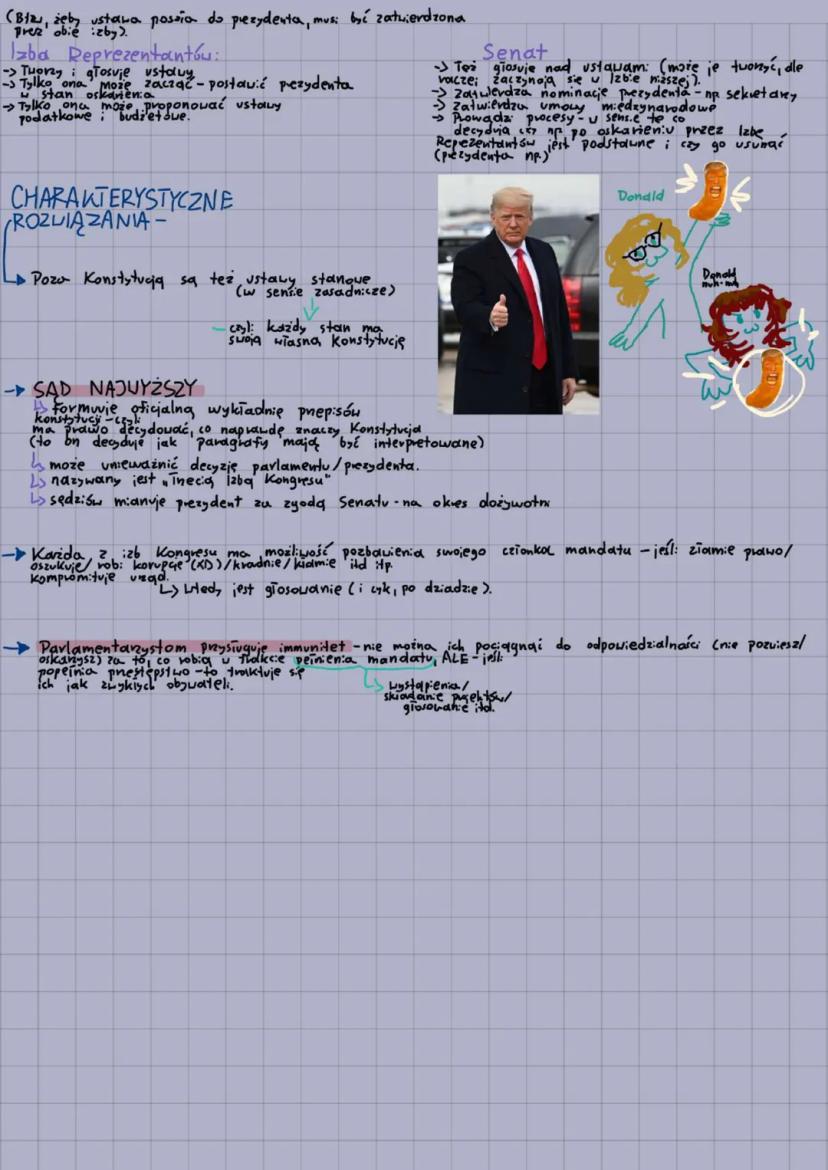 (Btw, żeby ustawa poszła do prezydenta, musi być zatwierdzona
przez obie izby).
Izba Reprezentantów:
-> Tworzy i głosuje ustawy
-> Tylko ona może zacząć - postawić prezydenta
w stan oskarżenia
-> Tylko ona może proponować ustawy
podatkowe i budżetowe.
Senat
-> Też głosuje nad ustawami (może je tworzyć, ale
raczej zaczynają się w Izbie niższej).
-> Zatwierdza nominacje prezydenta - np sekretarzy
-> Zatwierdza umowy międzynarodowe
-> Prowadzi procesy - w sensie to co
decydują czy np po oskarżeniu przez Izbę
Reprezentantów jest podstawne i czy go usunąć
(prezydenta np.)
CHARAKTERYSTYCZNE
ROZWIĄZANIA -
Donald
Donald
nuh-nuh
Poza Konstytucją są też ustawy stanowe
(w sensie zasadnicze)
- czyli każdy stan ma
swoją własną Konstytucję
-> SĄD NAJWYŻSZY
Formułuje oficjalną wykładnię przepisów
konstytucji - czyli
ma prawo decydować, co naprawdę znaczy Konstytucja
(to on decyduje jak paragrafy mają być interpretowane)
może unieważnić decyzję parlamentu/prezydenta.
nazywany jest "Trzecią Izbą Kongresu"
sędziów mianuje prezydent za zgodą Senatu - na okres dożywotni
-> Każda z izb Kongresu ma możliwość pozbawienia swojego członka mandatu - jeśli złamie prawo/
oszukuje/robi korupcję (XD)/kradnie/kłamie itd itp.
kompromituje urząd.
Wtedy jest głosowanie (i cyk, po dziadzie).
-> Parlamentarzystom przysługuje immunitet - nie można ich pociągnąć do odpowiedzialności (nie pozwiesz/
oskarżysz) za to, co robią w trakcie pełnienia mandatu, ALE - jeśli
popełnia przestępstwo - to traktuje się
ich jak zwykłych obywateli.
wystąpienia/
składanie projektów/
głosowanie itd.